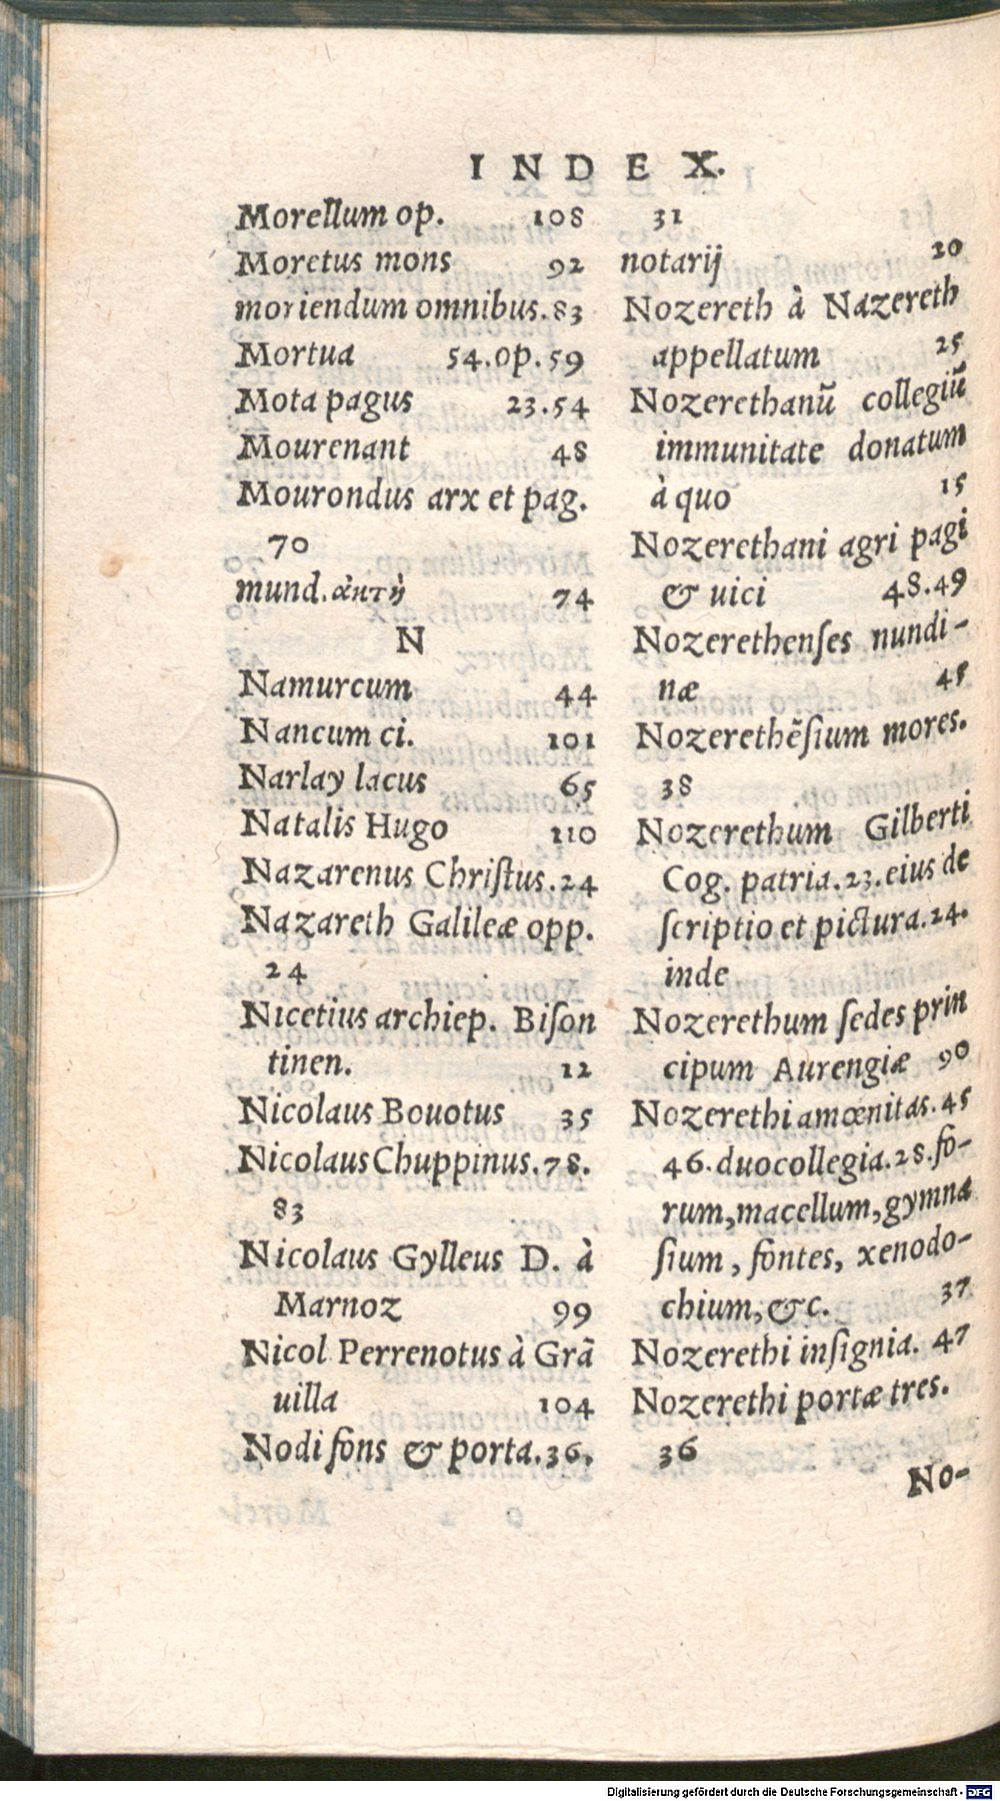 INDEX.
Morellum op. 108
Moretus mons 92
moriendum omnibus. 83
Mortua 54. op. 59
Mota pagus 23. 54
Mourenant 48
Mourondus arx et pag.
70
mund. 74
N
Namurcum 44
Nancum ci. 101
Narlay lacus 65
Natalis Hugo 110
Nazarenus Chriſtus. 24
Nazareth Galilææ opp.
24
Nicetius archiep. Biſon
tinen. 12
Nicolaus Bouotus 35
Nicolaus Chuppinus. 78.
83
Nicolaus Gylleus D. à
Marnoz 99
Nicol Perrenotus à Grã
uilla 104
Nodi fons & porta. 36.
31
notarij 20
Nozereth à Nazereth
appellatum 25
Nozerethanũ collegiũ
immunitate donatum
à quo 15
Nozerethani agri pagi
& uici 48. 49
Nozerethenſes nundi-
næ 45
Nozerethẽſium mores.
38
Nozerethum Gilberti
Cog. patria. 23. eius de
ſcriptio et pictura. 24.
inde
Nozerethum ſedes prin
cipum Aurengiæ 90
Nozerethi amœnitas. 45
46. duo collegia. 28. fo-
rum, macellum, gymna
ſium, fontes, xenodo-
chium, &c. 37
Nozerethi inſignia. 47
Nozerethi portæ tres.
36
No-
Digitalisierung gefördert durch die Deutsche Forschungsgemeinschaft - DFG